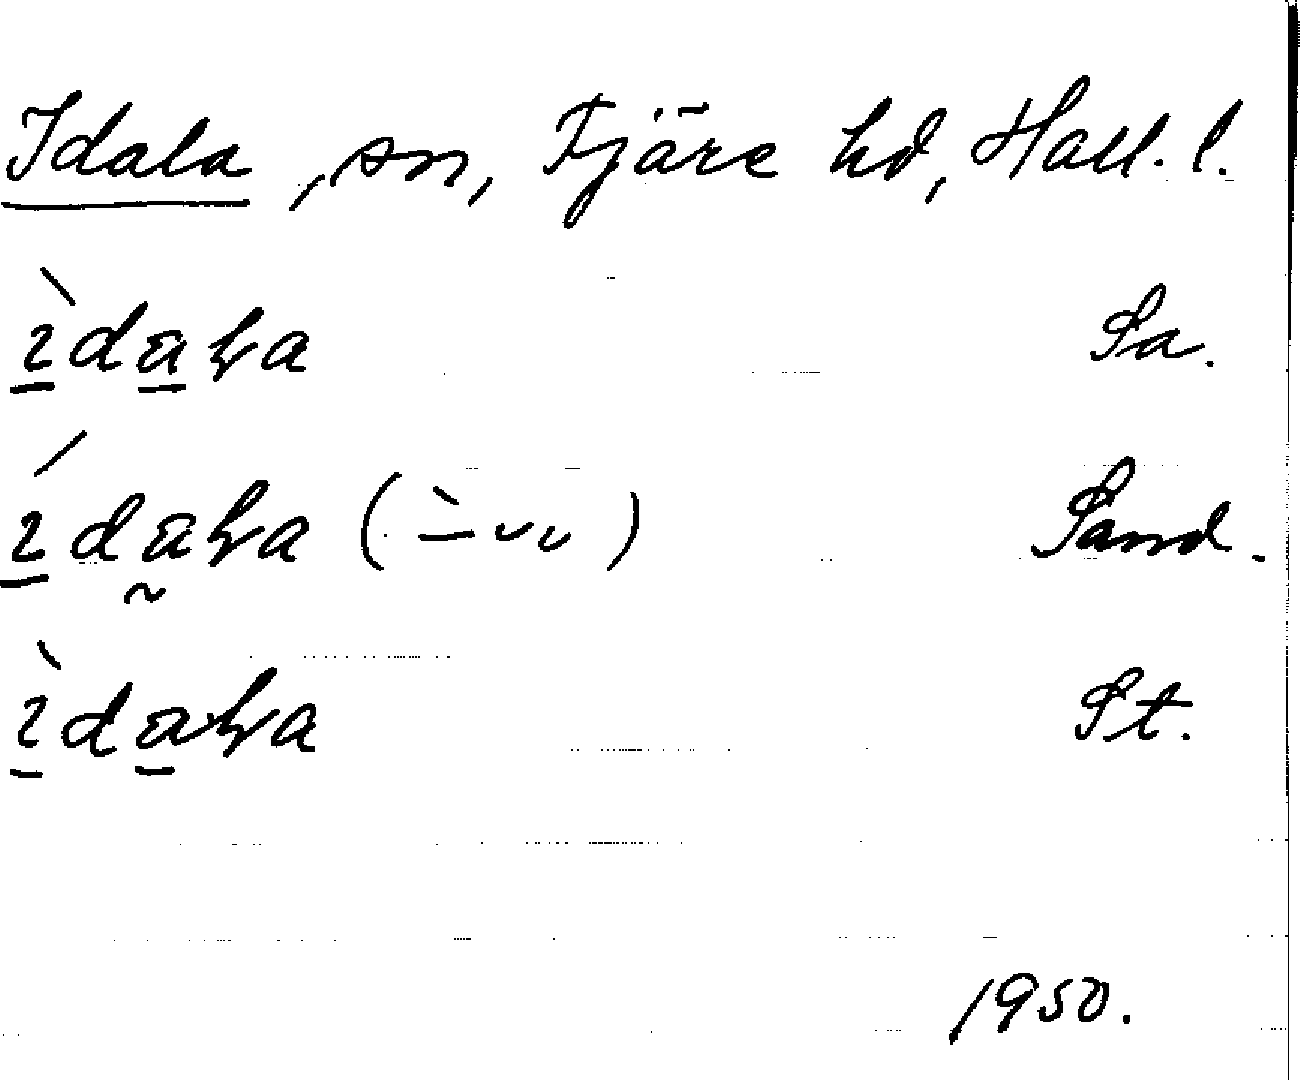 Idala, sn, Fjäre hd, Hall. l.
ı̱̀da̱ɽa Sa.
ı̱́da̰ɽa (–̀ ᴗ ᴗ) Sand.
ı̱̀da̱ɽa St.
1950.